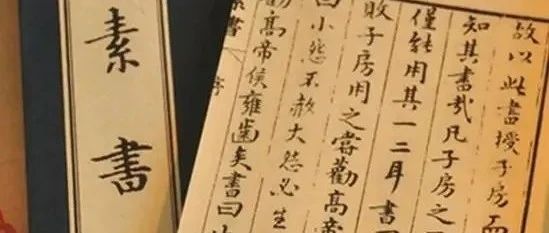 故以此書授子房而
知其書哉凡子房之
僅能用其一二耳書
敗子房用之嘗勸高帝
曰小怨不赦大怨必生
勸高帝侯雍齒矣書曰
素書 序
素書